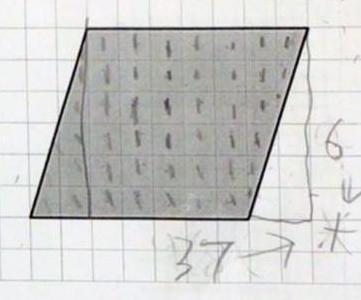 6
37